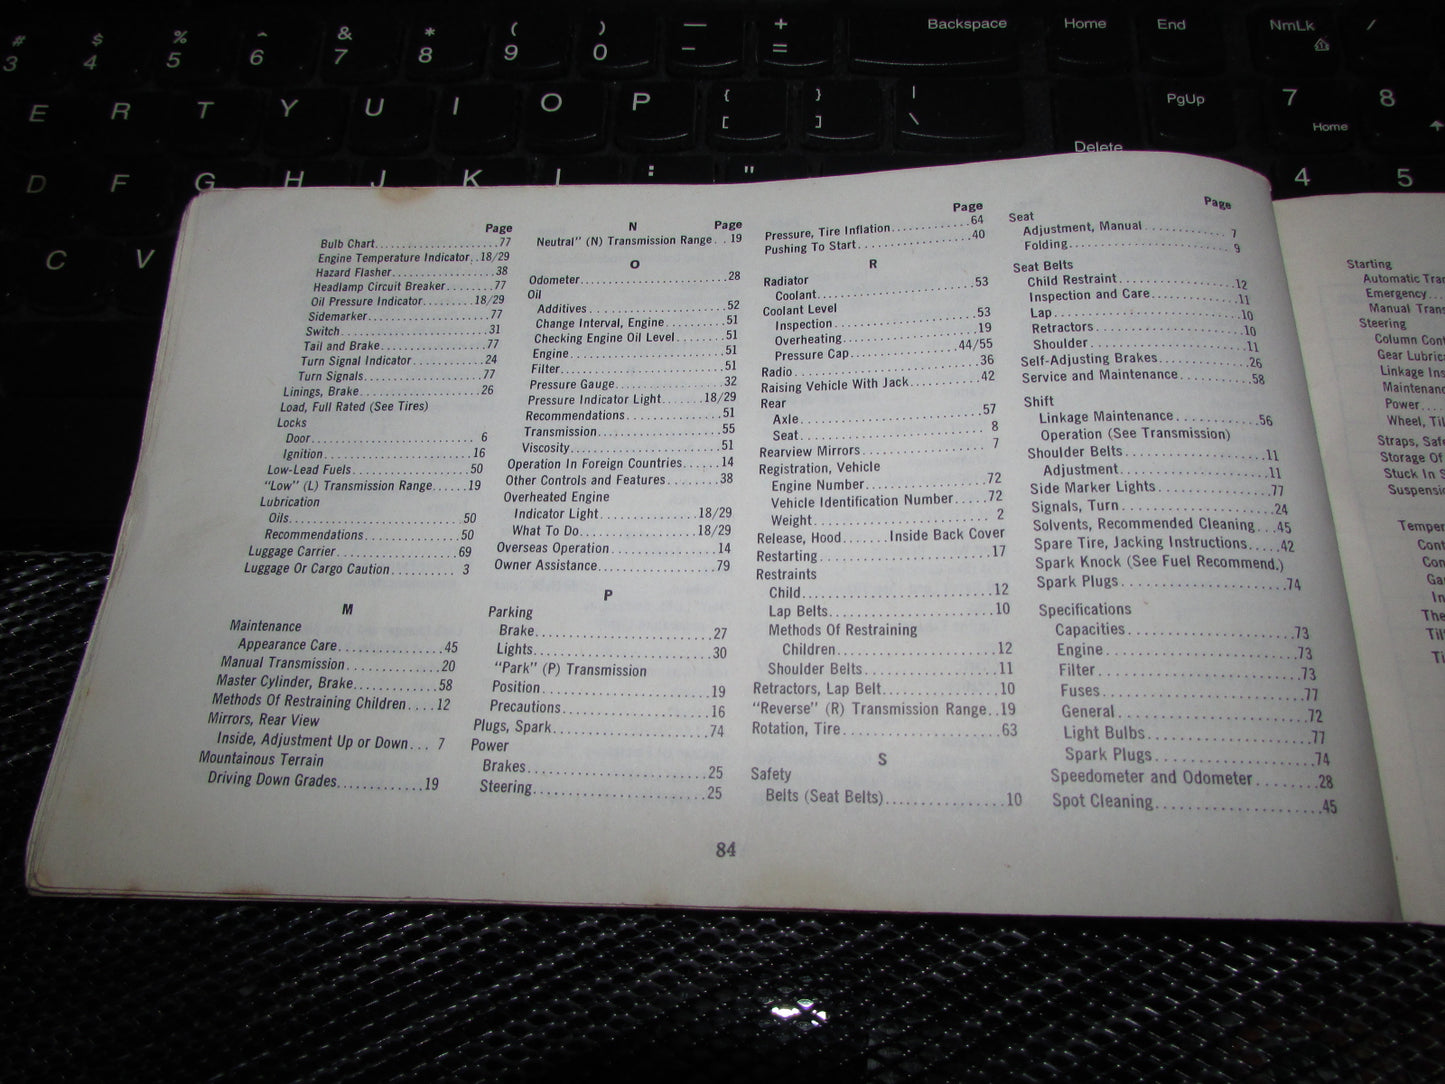 # 3
$ 4
% 5
^ 6
& 7
* 8
( 9
) 0
— -
+ =
Backspace
Home
End
NmLk
/
E R T Y U I O P { [ } ] | \
PgUp
7 Home
8
Delete
D F G H J K L : "
4 5
C V
Page
Bulb Chart 77
Engine Temperature Indicator 18/29
Hazard Flasher 38
Headlamp Circuit Breaker 77
Oil Pressure Indicator 18/29
Sidemarker 77
Switch 31
Tail and Brake 77
Turn Signal Indicator 24
Turn Signals 77
Linings, Brake 26
Load, Full Rated (See Tires)
Locks
Door 6
Ignition 16
Low-Lead Fuels 50
"Low" (L) Transmission Range 19
Lubrication
Oils 50
Recommendations 50
Luggage Carrier 69
Luggage Or Cargo Caution 3
M
Maintenance
Appearance Care 45
Manual Transmission 20
Master Cylinder, Brake 58
Methods Of Restraining Children 12
Mirrors, Rear View
Inside, Adjustment Up or Down 7
Mountainous Terrain
Driving Down Grades 19
N Page
Neutral" (N) Transmission Range 19
O
Odometer 28
Oil
Additives 52
Change Interval, Engine 51
Checking Engine Oil Level 51
Engine 51
Filter 51
Pressure Gauge 32
Pressure Indicator Light 18/29
Recommendations 51
Transmission 55
Viscosity 51
Operation In Foreign Countries 14
Other Controls and Features 38
Overheated Engine
Indicator Light 18/29
What To Do 18/29
Overseas Operation 14
Owner Assistance 79
P
Parking
Brake 27
Lights 30
"Park" (P) Transmission
Position 19
Precautions 16
Plugs, Spark 74
Power
Brakes 25
Steering 25
Page
Pressure, Tire Inflation 64
Pushing To Start 40
R
Radiator
Coolant 53
Coolant Level
Inspection 53
Overheating 19
Pressure Cap 44/55
Radio 36
Raising Vehicle With Jack 42
Rear
Axle 57
Seat 8
Rearview Mirrors 7
Registration, Vehicle
Engine Number 72
Vehicle Identification Number 72
Weight 2
Release, Hood Inside Back Cover
Restarting 17
Restraints
Child 12
Lap Belts 10
Methods Of Restraining
Children 12
Shoulder Belts 11
Retractors, Lap Belt 10
"Reverse" (R) Transmission Range 19
Rotation, Tire 63
S
Safety
Belts (Seat Belts) 10
Page
Seat
Adjustment, Manual 7
Folding 9
Seat Belts
Child Restraint 12
Inspection and Care 11
Lap 10
Retractors 10
Shoulder 11
Self-Adjusting Brakes 26
Service and Maintenance 58
Shift
Linkage Maintenance 56
Operation (See Transmission)
Shoulder Belts 11
Adjustment 11
Side Marker Lights 77
Signals, Turn 24
Solvents, Recommended Cleaning 45
Spare Tire, Jacking Instructions 42
Spark Knock (See Fuel Recommend.)
Spark Plugs 74
Specifications
Capacities 73
Engine 73
Filter 73
Fuses 77
General 72
Light Bulbs 77
Spark Plugs 74
Speedometer and Odometer 28
Spot Cleaning 45
84
Starting
Automatic Tra
Emergency
Manual Trans
Steering
Column Con
Gear Lubric
Linkage Ins
Maintenanc
Power
Wheel, Til
Straps, Safe
Storage Of
Stuck In S
Suspensi
Temper
Cont
Con
Ga
In
The
Til
Ti